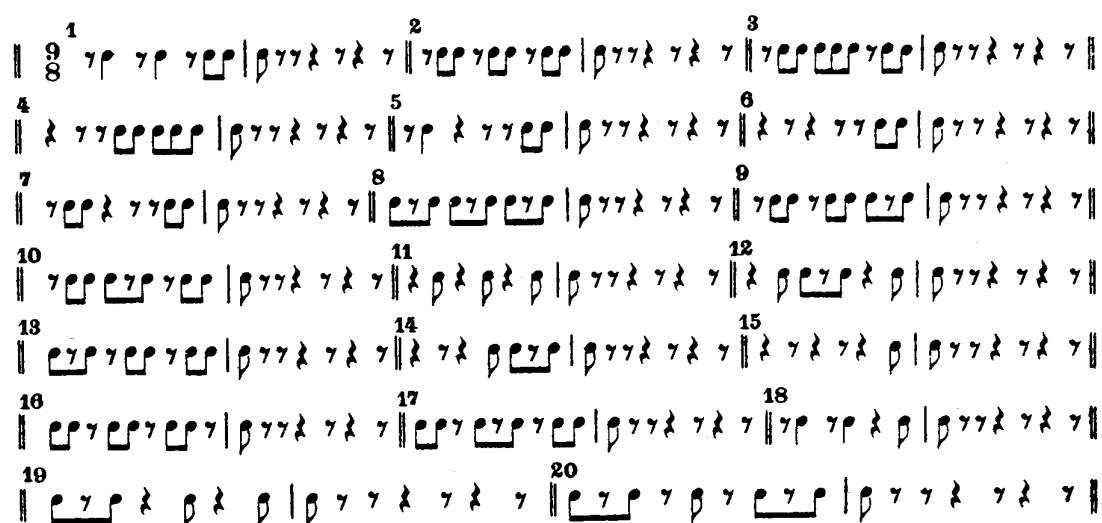 1 2 3
9
8
4 5 6
7 8 9
10 11 12
13 14 15
16 17 18
19 20